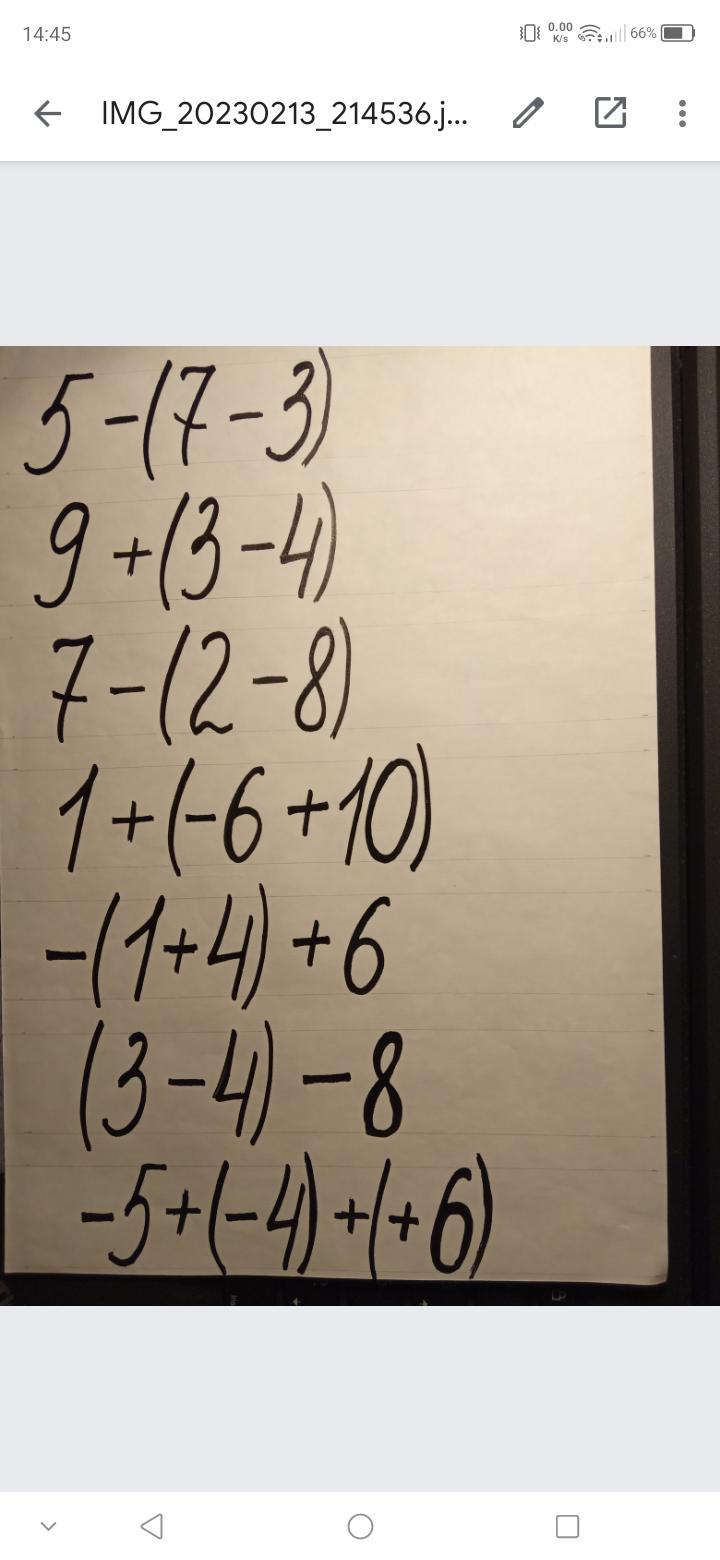 14:45 0.00 K/s 66%
IMG_20230213_214536.j...
5-(7-3)
9+(3-4)
7-(2-8)
1+(-6+10)
-(1+4)+6
(3-4)-8
-5+(-4)+(+6)